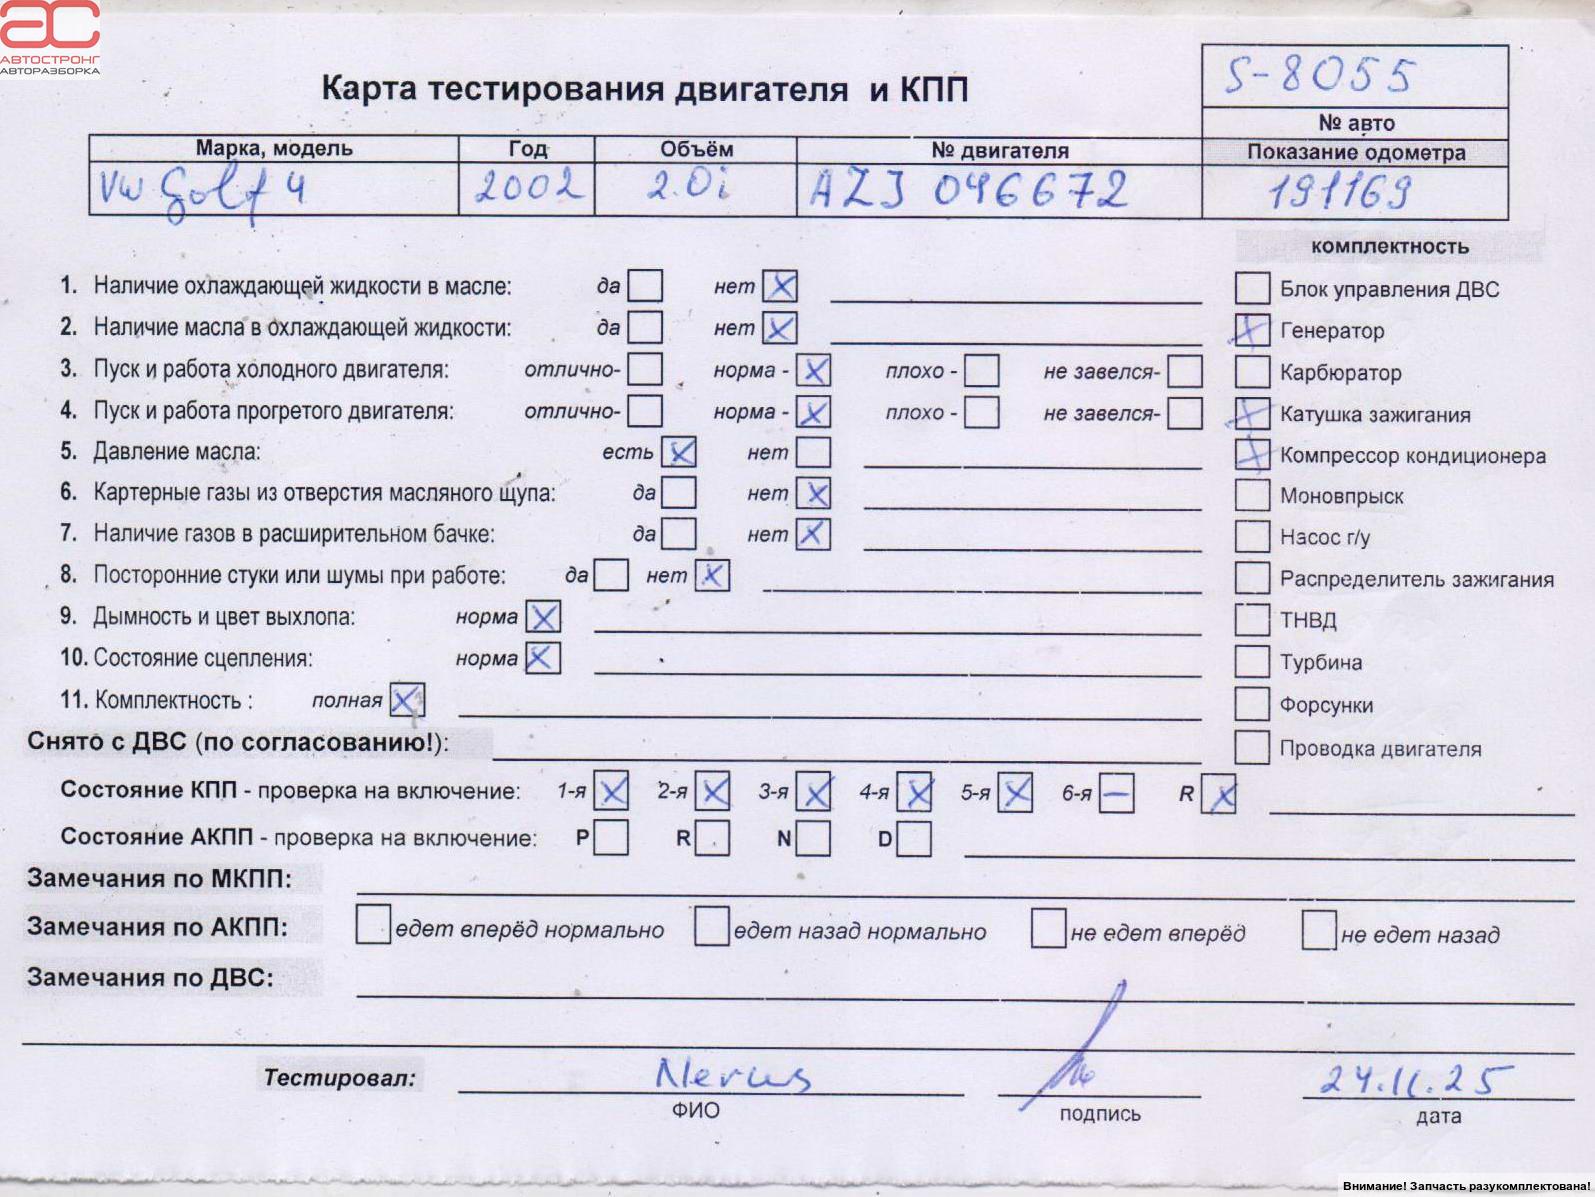 АС
АВТОСТРОНГ
АВТОРАЗБОРКА
Карта тестирования двигателя и КПП
S-8055
№ авто
Марка, модель Год Объём № двигателя Показание одометра
VW Golf 4 2002 2.0i AZJ 046672 191169
комплектность
1. Наличие охлаждающей жидкости в масле: да нет X
Блок управления ДВС
2. Наличие масла в охлаждающей жидкости: да нет X
X Генератор
3. Пуск и работа холодного двигателя: отлично- норма - X плохо - не завелся-
Карбюратор
4. Пуск и работа прогретого двигателя: отлично- норма - X плохо - не завелся-
X Катушка зажигания
5. Давление масла: есть X нет
X Компрессор кондиционера
6. Картерные газы из отверстия масляного щупа: да нет X
Моновпрыск
7. Наличие газов в расширительном бачке: да нет X
Насос г/у
8. Посторонние стуки или шумы при работе: да нет X
Распределитель зажигания
9. Дымность и цвет выхлопа: норма X
ТНВД
10. Состояние сцепления: норма X
Турбина
11. Комплектность : полная X
Форсунки
Снято с ДВС (по согласованию!):
Проводка двигателя
Состояние КПП - проверка на включение: 1-я X 2-я X 3-я X 4-я X 5-я X 6-я – R X
Состояние АКПП - проверка на включение: P R N D
Замечания по МКПП:
Замечания по АКПП: едет вперёд нормально едет назад нормально не едет вперёд не едет назад
Замечания по ДВС:
Тестировал: 24.11.25
ФИО подпись дата
Внимание! Запчасть разукомплектована!